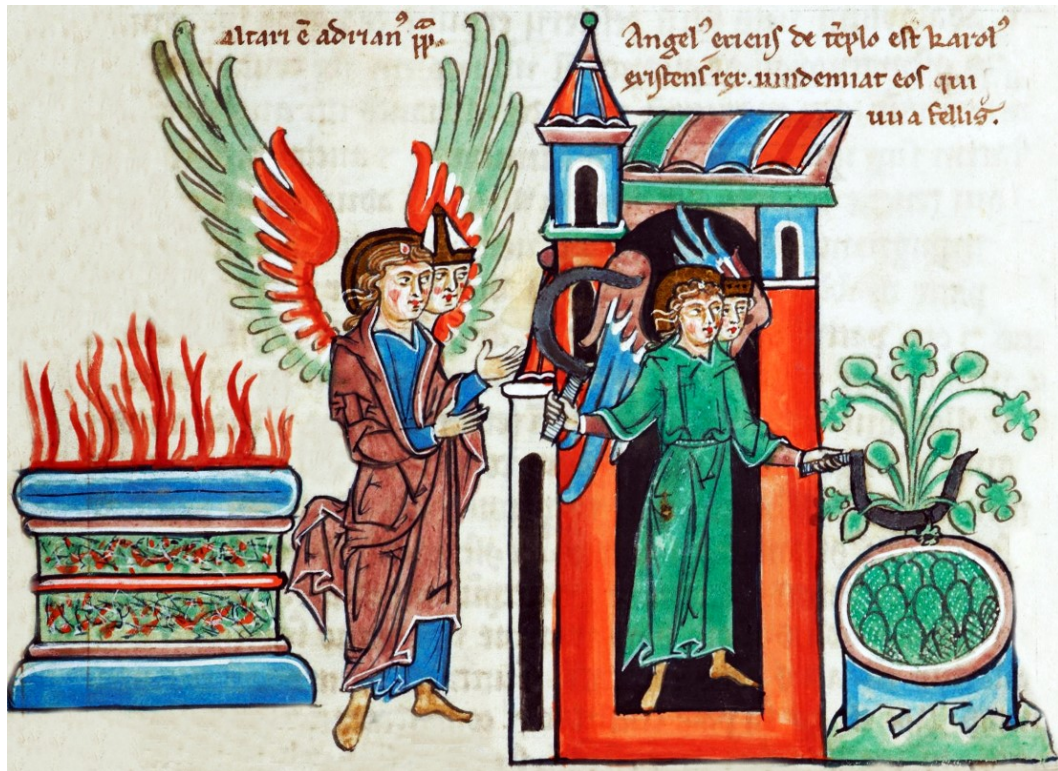 altari ē adrian⁹ p̄p̄.
Angel⁹ exiens de tēplo est karol⁹
existens rex. uindemiat eos qui
uua fellis.